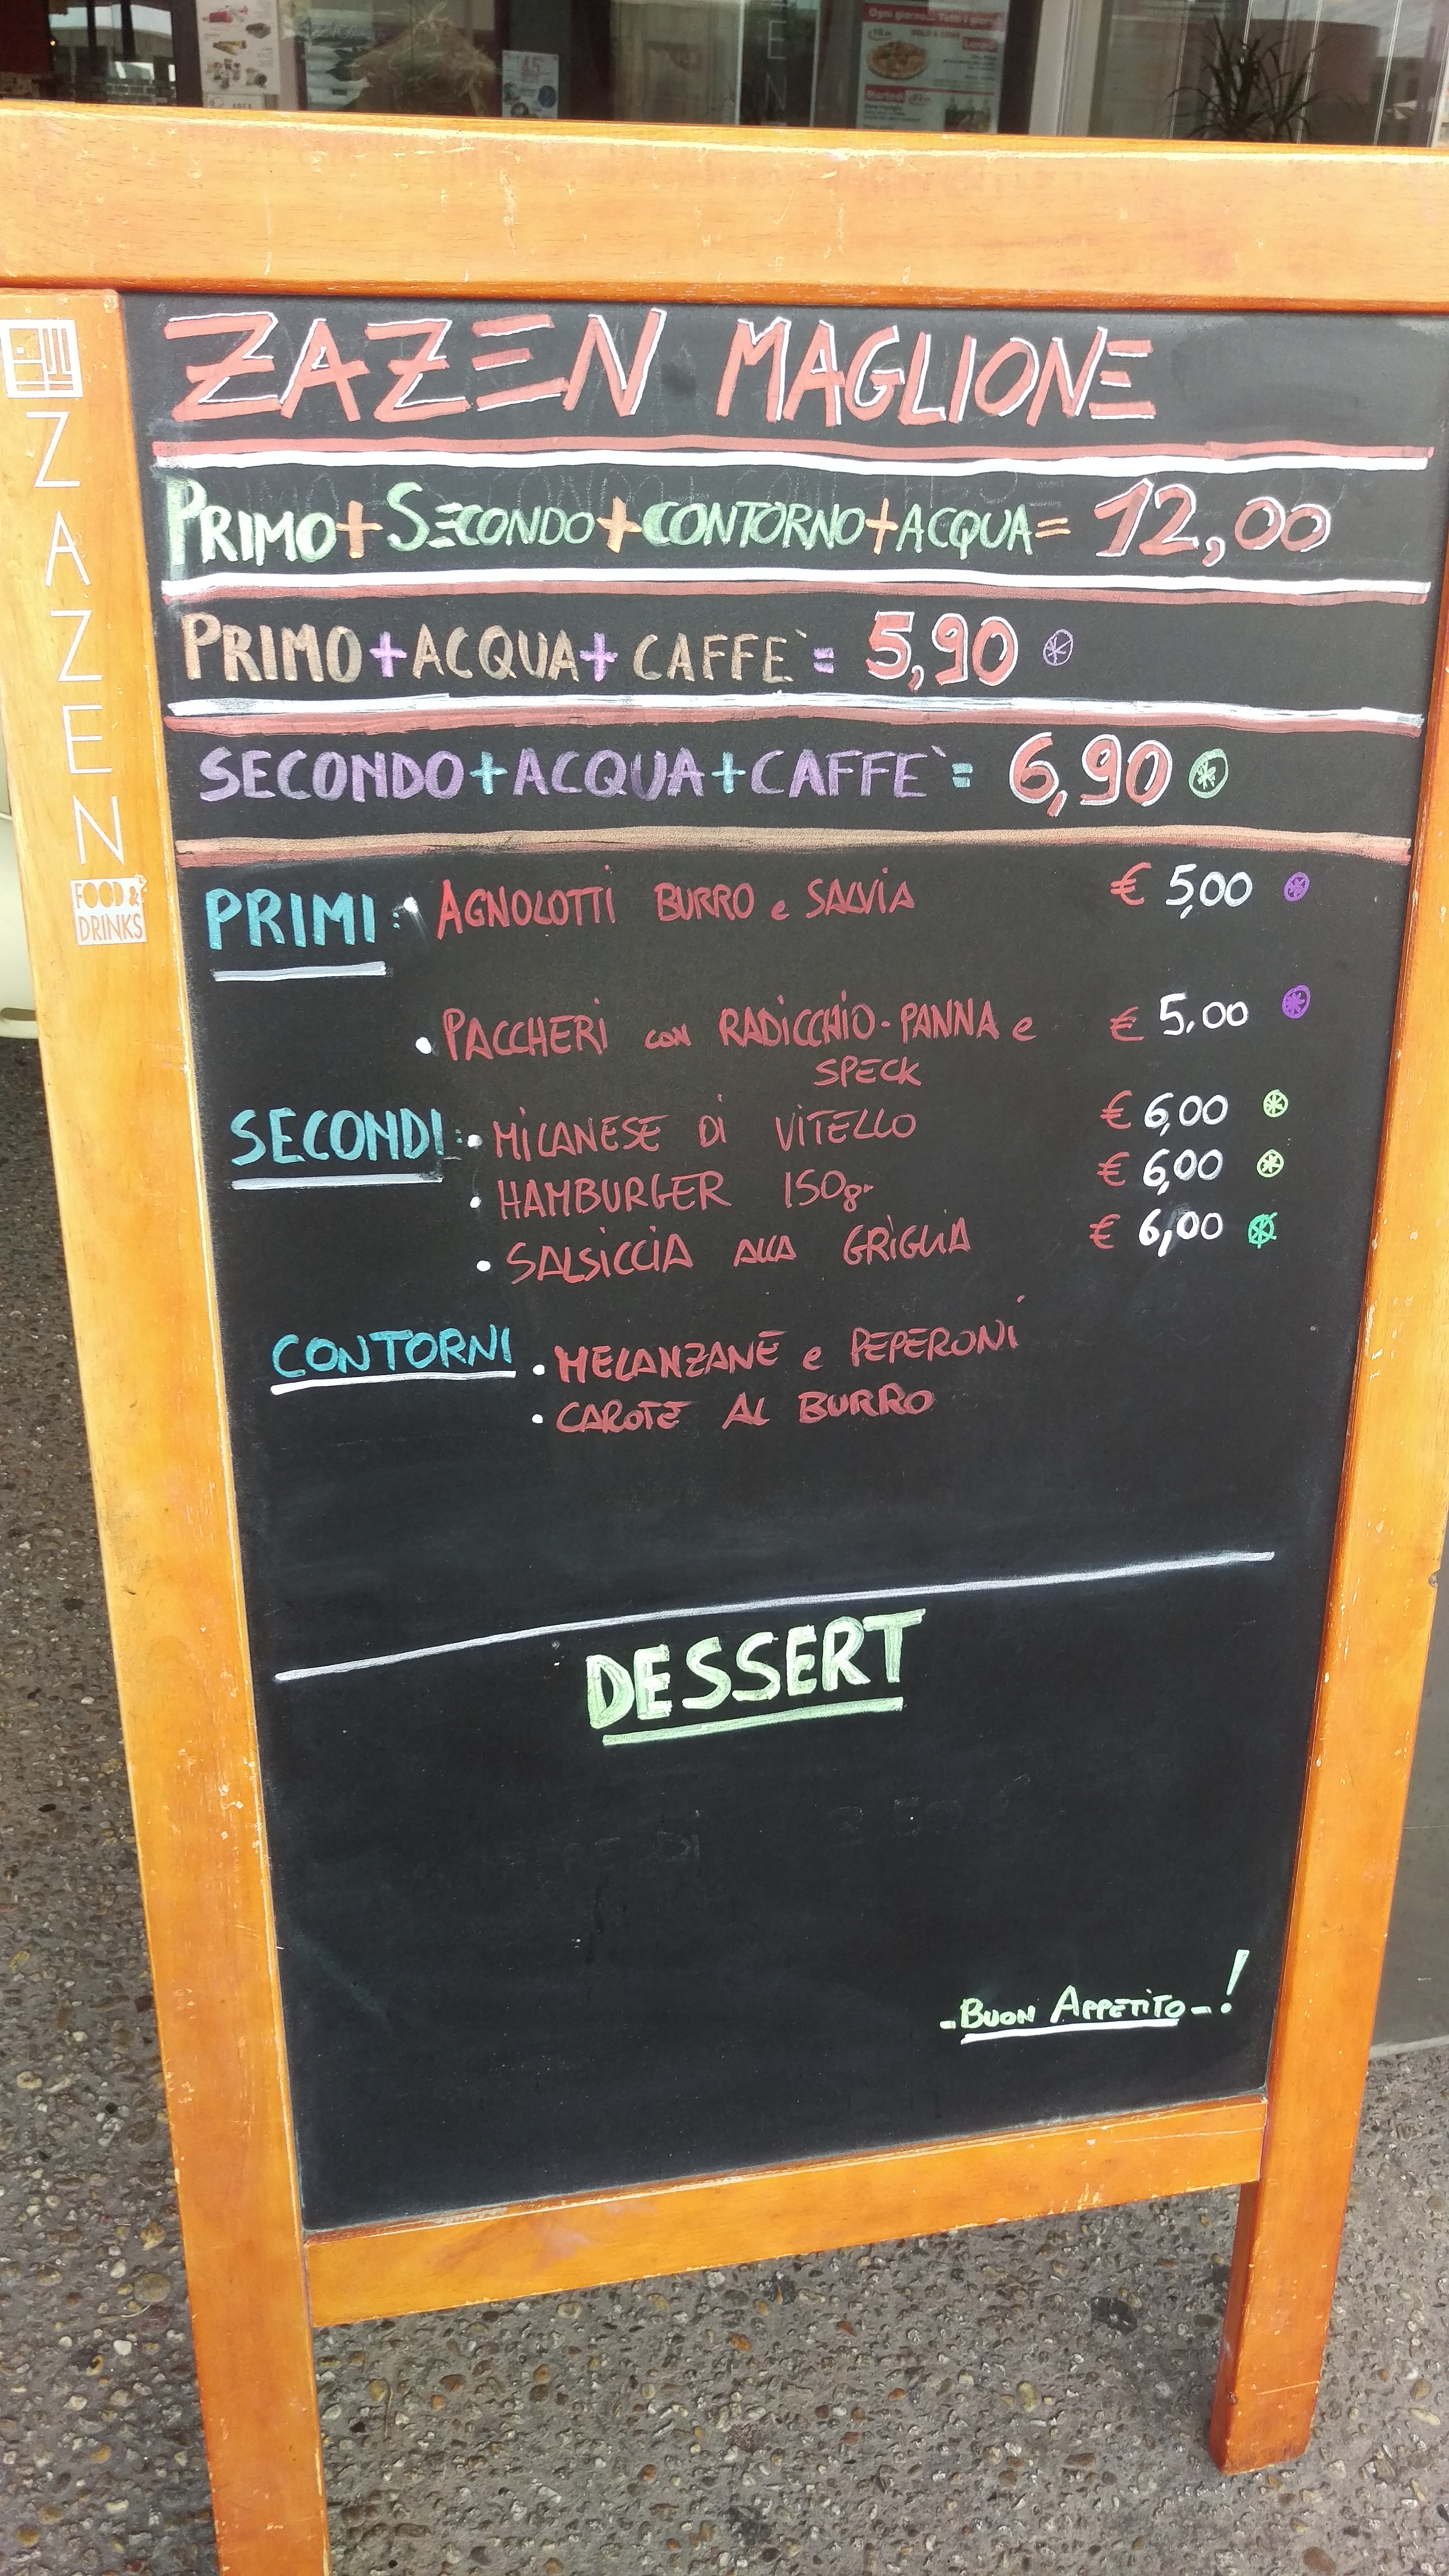 Ogni giorno... Tutti i giorni
Martedì
45
ZAZEN MAGLIONE
PRIMO+SECONDO+CONTORNO+ACQUA= 12,00
PRIMO+ACQUA+CAFFE`= 5,90
SECONDO+ACQUA+CAFFE`= 6,90
PRIMI: • AGNOLOTTI BURRO e SALVIA € 5,00
• PACCHERI con RADICCHIO-PANNA e € 5,00
SPECK
SECONDI: • MILANESE DI VITELLO € 6,00
• HAMBURGER 150gr € 6,00
• SALSICCIA ALLA GRIGLIA € 6,00
CONTORNI • MELANZANE e PEPERONI
• CAROTE AL BURRO
DESSERT
-BUON APPETITO-!
ZAZEN
FOOD &
DRINKS